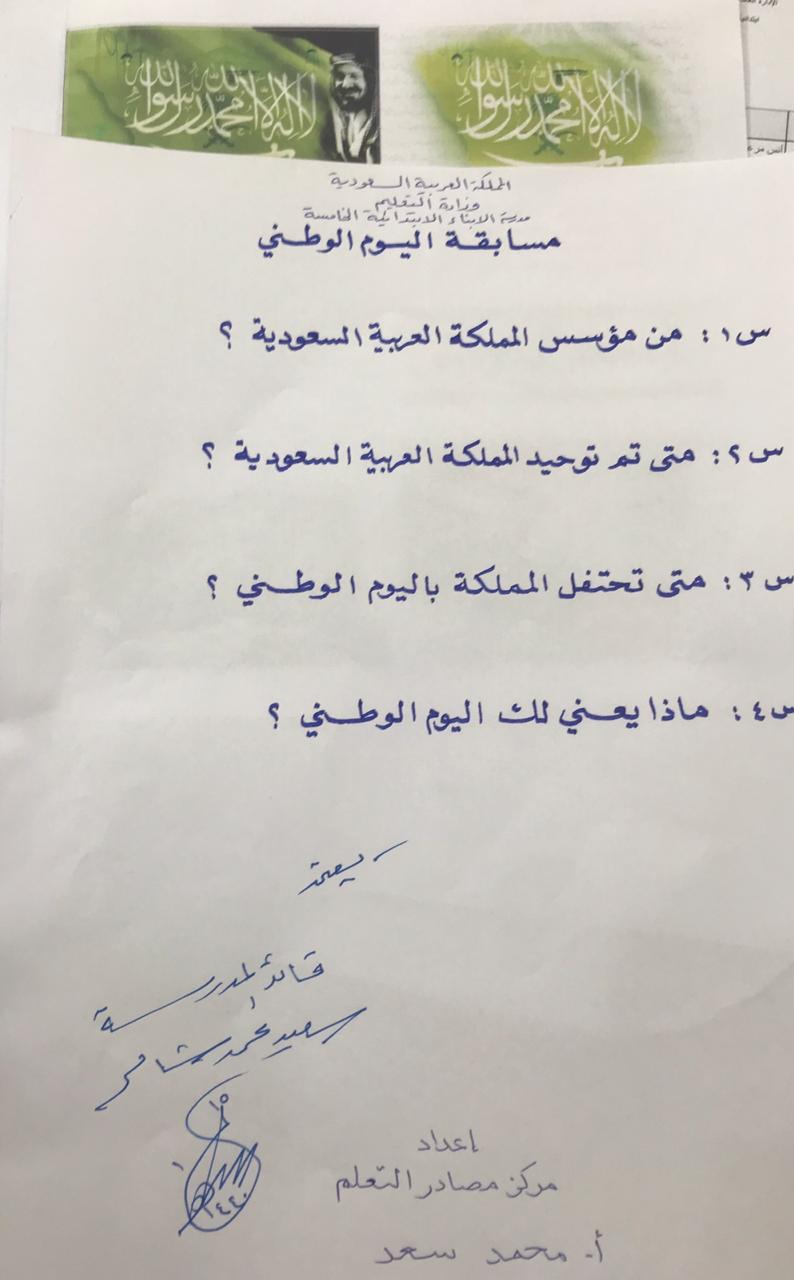 لا إله إلا الله محمد رسول الله
لا إله إلا الله محمد رسول الله
المملكة العربية السعودية
وزارة التعليم
مدرسة الابناء الابتدائية الخامسة
مسابقة اليوم الوطني
س١: من مؤسس المملكة العربية السعودية ؟
س٢: متى تم توحيد المملكة العربية السعودية ؟
س٣: متى تحتفل المملكة باليوم الوطني ؟
س٤: ماذا يعني لك اليوم الوطني ؟
يعتمد
قائد المدرسة
سعيد محمد
١٤٤٠
إعداد
مركز مصادر التعلم
أ. محمد سعد